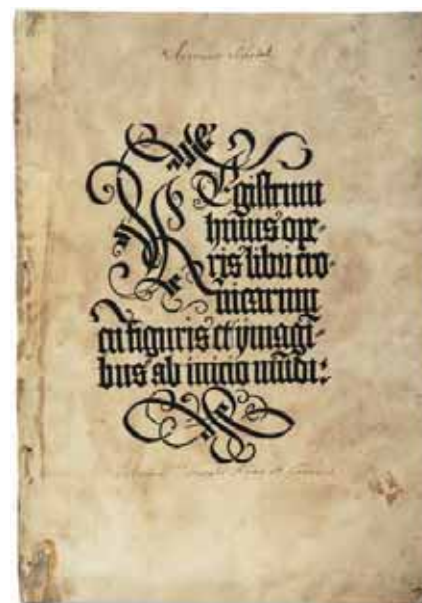 Registrum
huius ope-
ris libri cro-
nicarum
cū figuris et ymagi-
bus ab inicio mūdi: